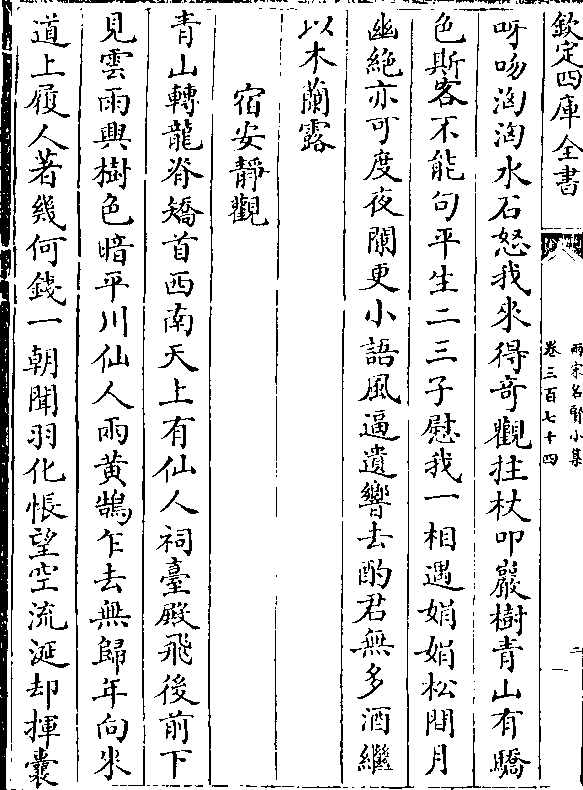 欽定四庫全書
兩宋名賢小集
卷三百七十四
二
呀呦洶洶水石怒我來得奇觀拄杖叩巖樹青山有驕
色斯客不能句平生二三子慰我一相遇娟娟松間月
幽絶亦可度夜闌更小語風逼遺響去酌君無多酒繼
以木蘭露
宿安靜觀
青山轉龍脊矯首西南天上有仙人祠臺殿飛後前下
見雲雨興樹色暗平川仙人兩黃鵠乍去無歸年向來
道上履人著幾何錢一朝聞羽化悵望空流涎却揮囊